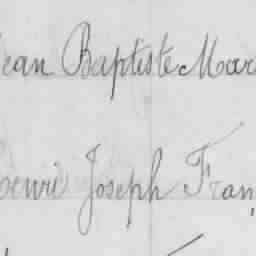 Jean Baptiste Mar
Henri Joseph Fran